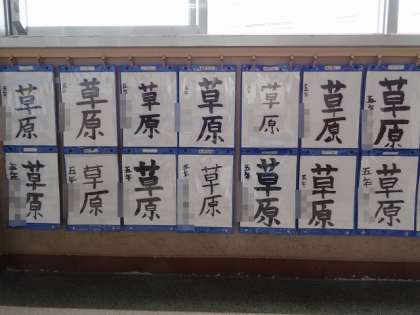 草原
五年
草原
五年
草原
五年
草原
五年
草原
五年
草原
五年
草原
五年
草原
五年
草原
五年
草原
五年
草原
五年
草原
五年
草原
五年
草原
五年